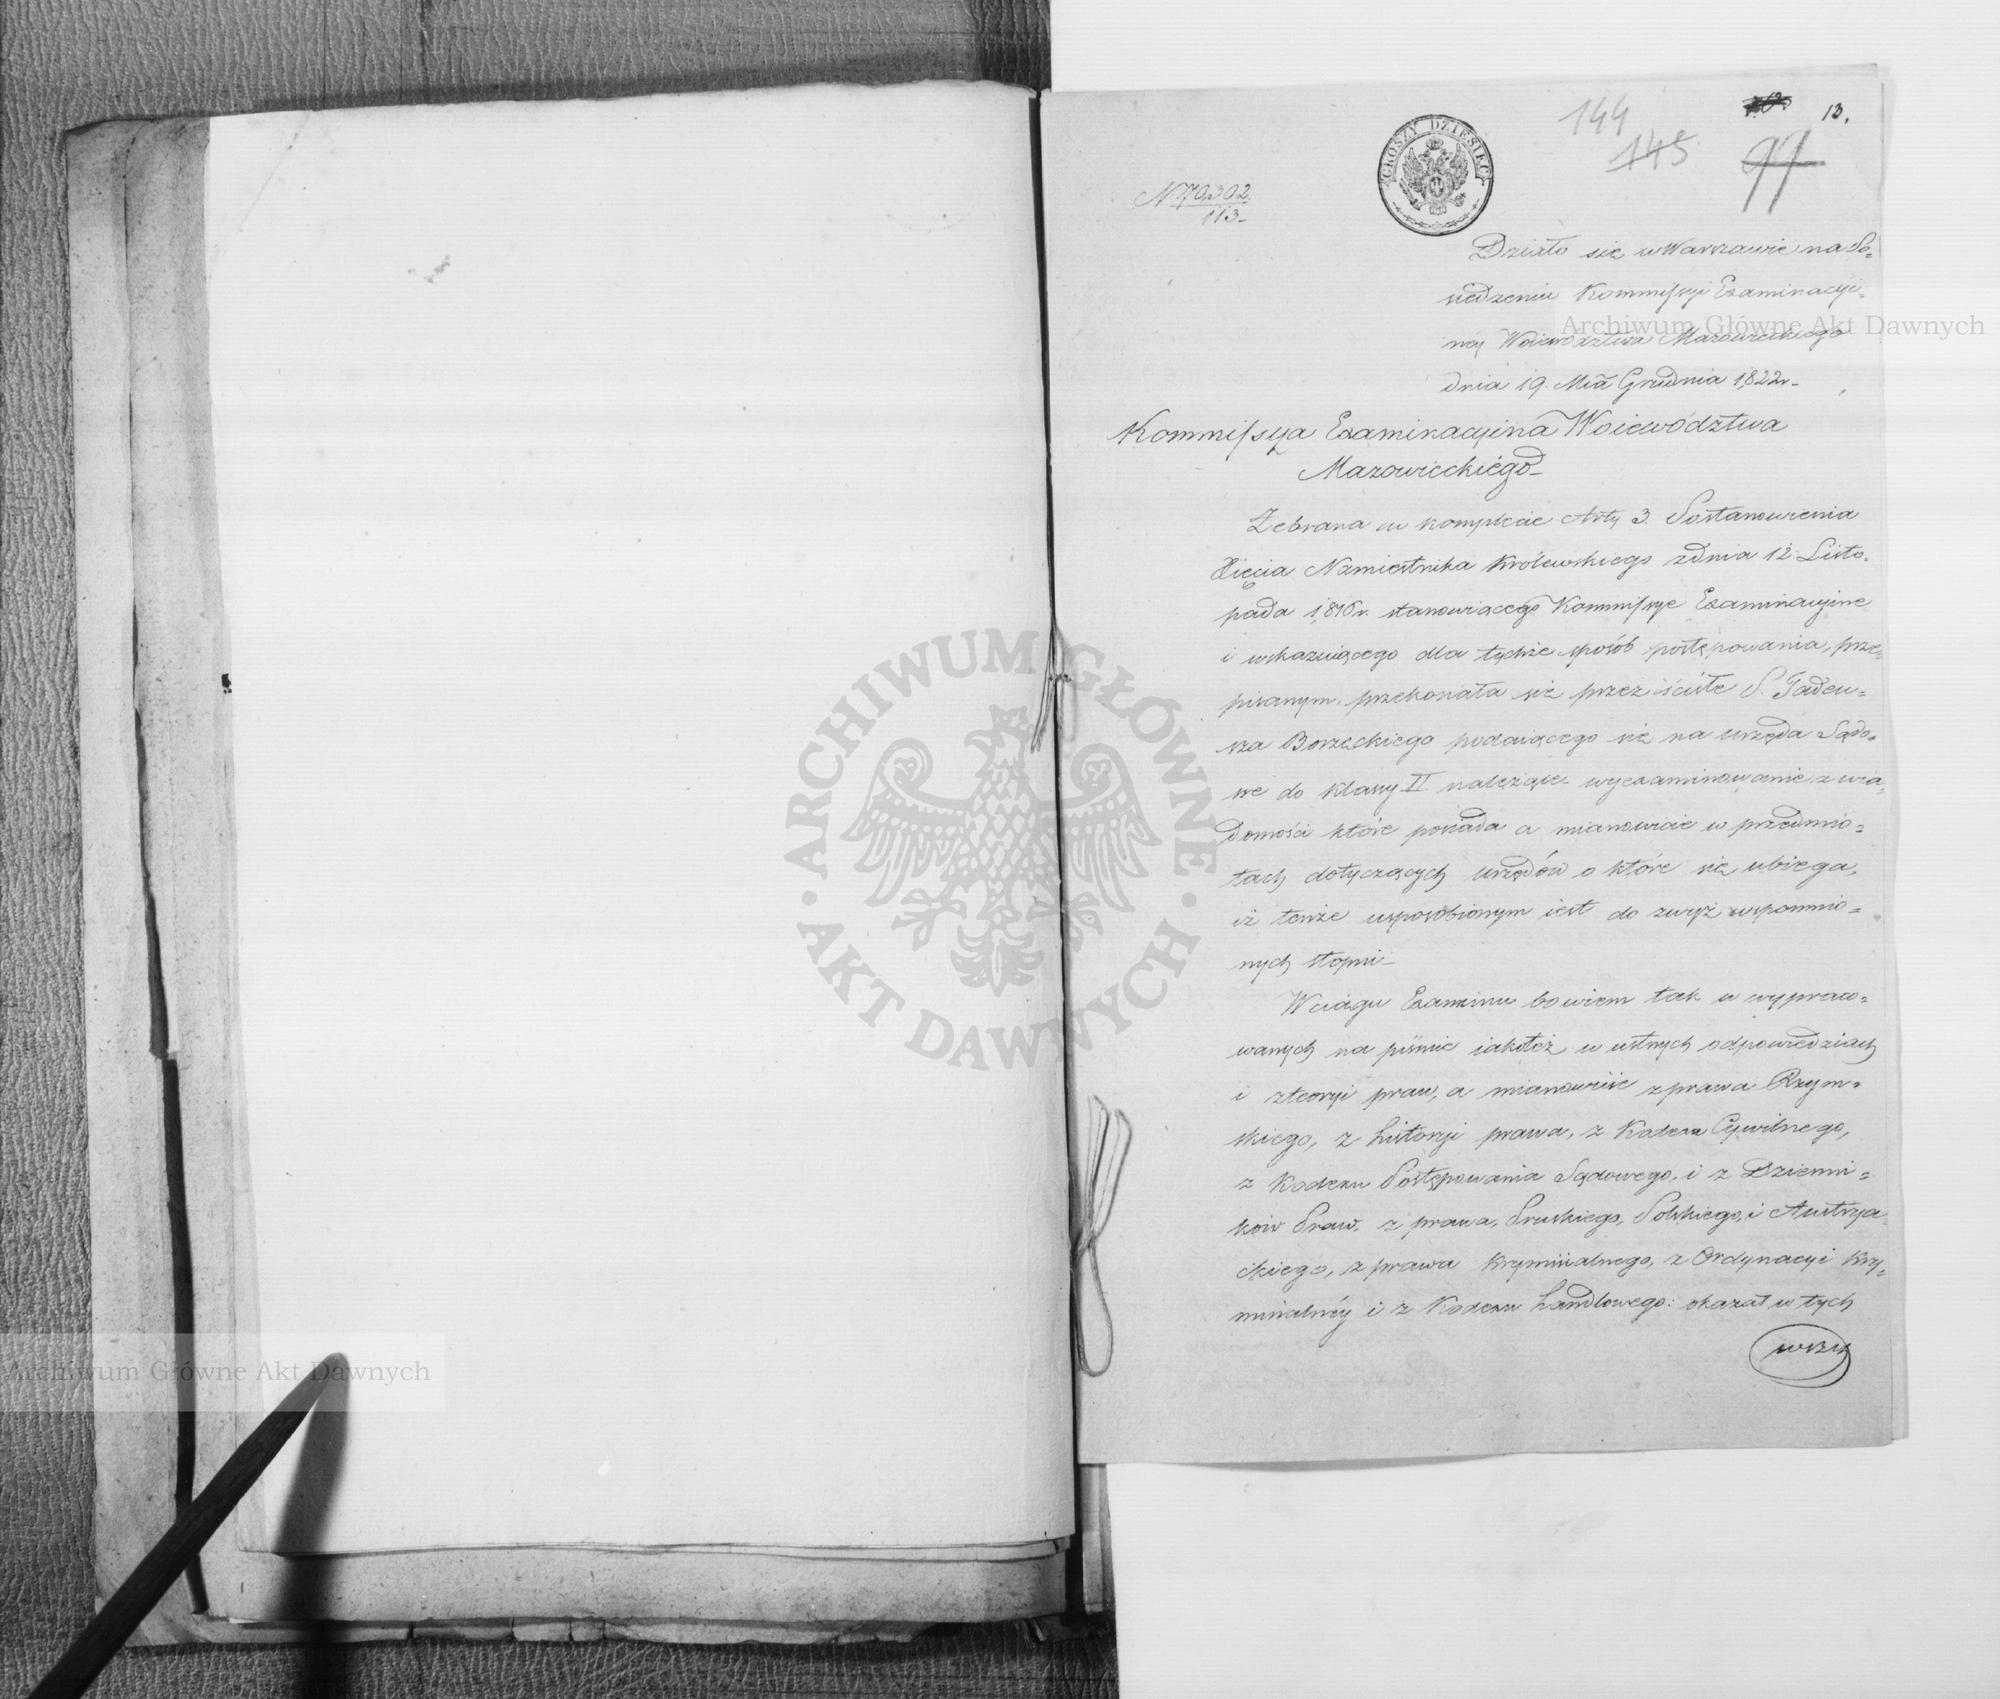 144
145
13.
97
N 70302
113
GROSZY DZIESIĘĆ
Działo się w Warszawie na Po=
siedzeniu Kommissyi Examinacyi=
ney Woiewodztwa Mazowieckiego
dnia 19. Mca Grudnia 1822r.
Kommissya Examinacyina Woiewództwa
Mazowieckiégo
Zebrana w komplecie Arty 3. Postanowienia
Xięcia Namiestnika Królewskiego z dnia 12 Listo=
pada 1816r. stanowiącego Kommissye Examinacyine
i wskazuiącego dla tychże sposób postępowania, prze=
pisanym, przekonała się przez ściśłe P. Tadeu=
sza Borzęckiego podaiącego się na urzęda Sądo=
we do klassy II należące wyexaminowanie z wia=
domości które posiada a mianowicie w przedmio=
tach dotyczących urzędów o które się ubiega,
iż tenże usposobionym iest do zwyż wspomnio=
nych stopni
W ciągu Examinu bowiem tak w wypraco=
wanych na piśmie iakoteż w ustnych odpowiedziach
i z teoryi praw, a mianowicie z prawa Rzym=
skiego, z historyi prawa, z Kodexu Cywilnego,
z Kodexu Postępowania Sądowego, i z Dzienni=
ków Praw, z prawa, Pruskiego, Polskiego, i Austrya
ckiego, z prawa kryminalnego, z Ordynacyi kry=
minalnéy i z Kodexu handlowego: okazał w tych
wszy
Archiwum Główne Akt Dawnych
ARCHIWUM GŁÓWNE · AKT DAWNYCH ·
Archiwum Główne Akt Dawnych